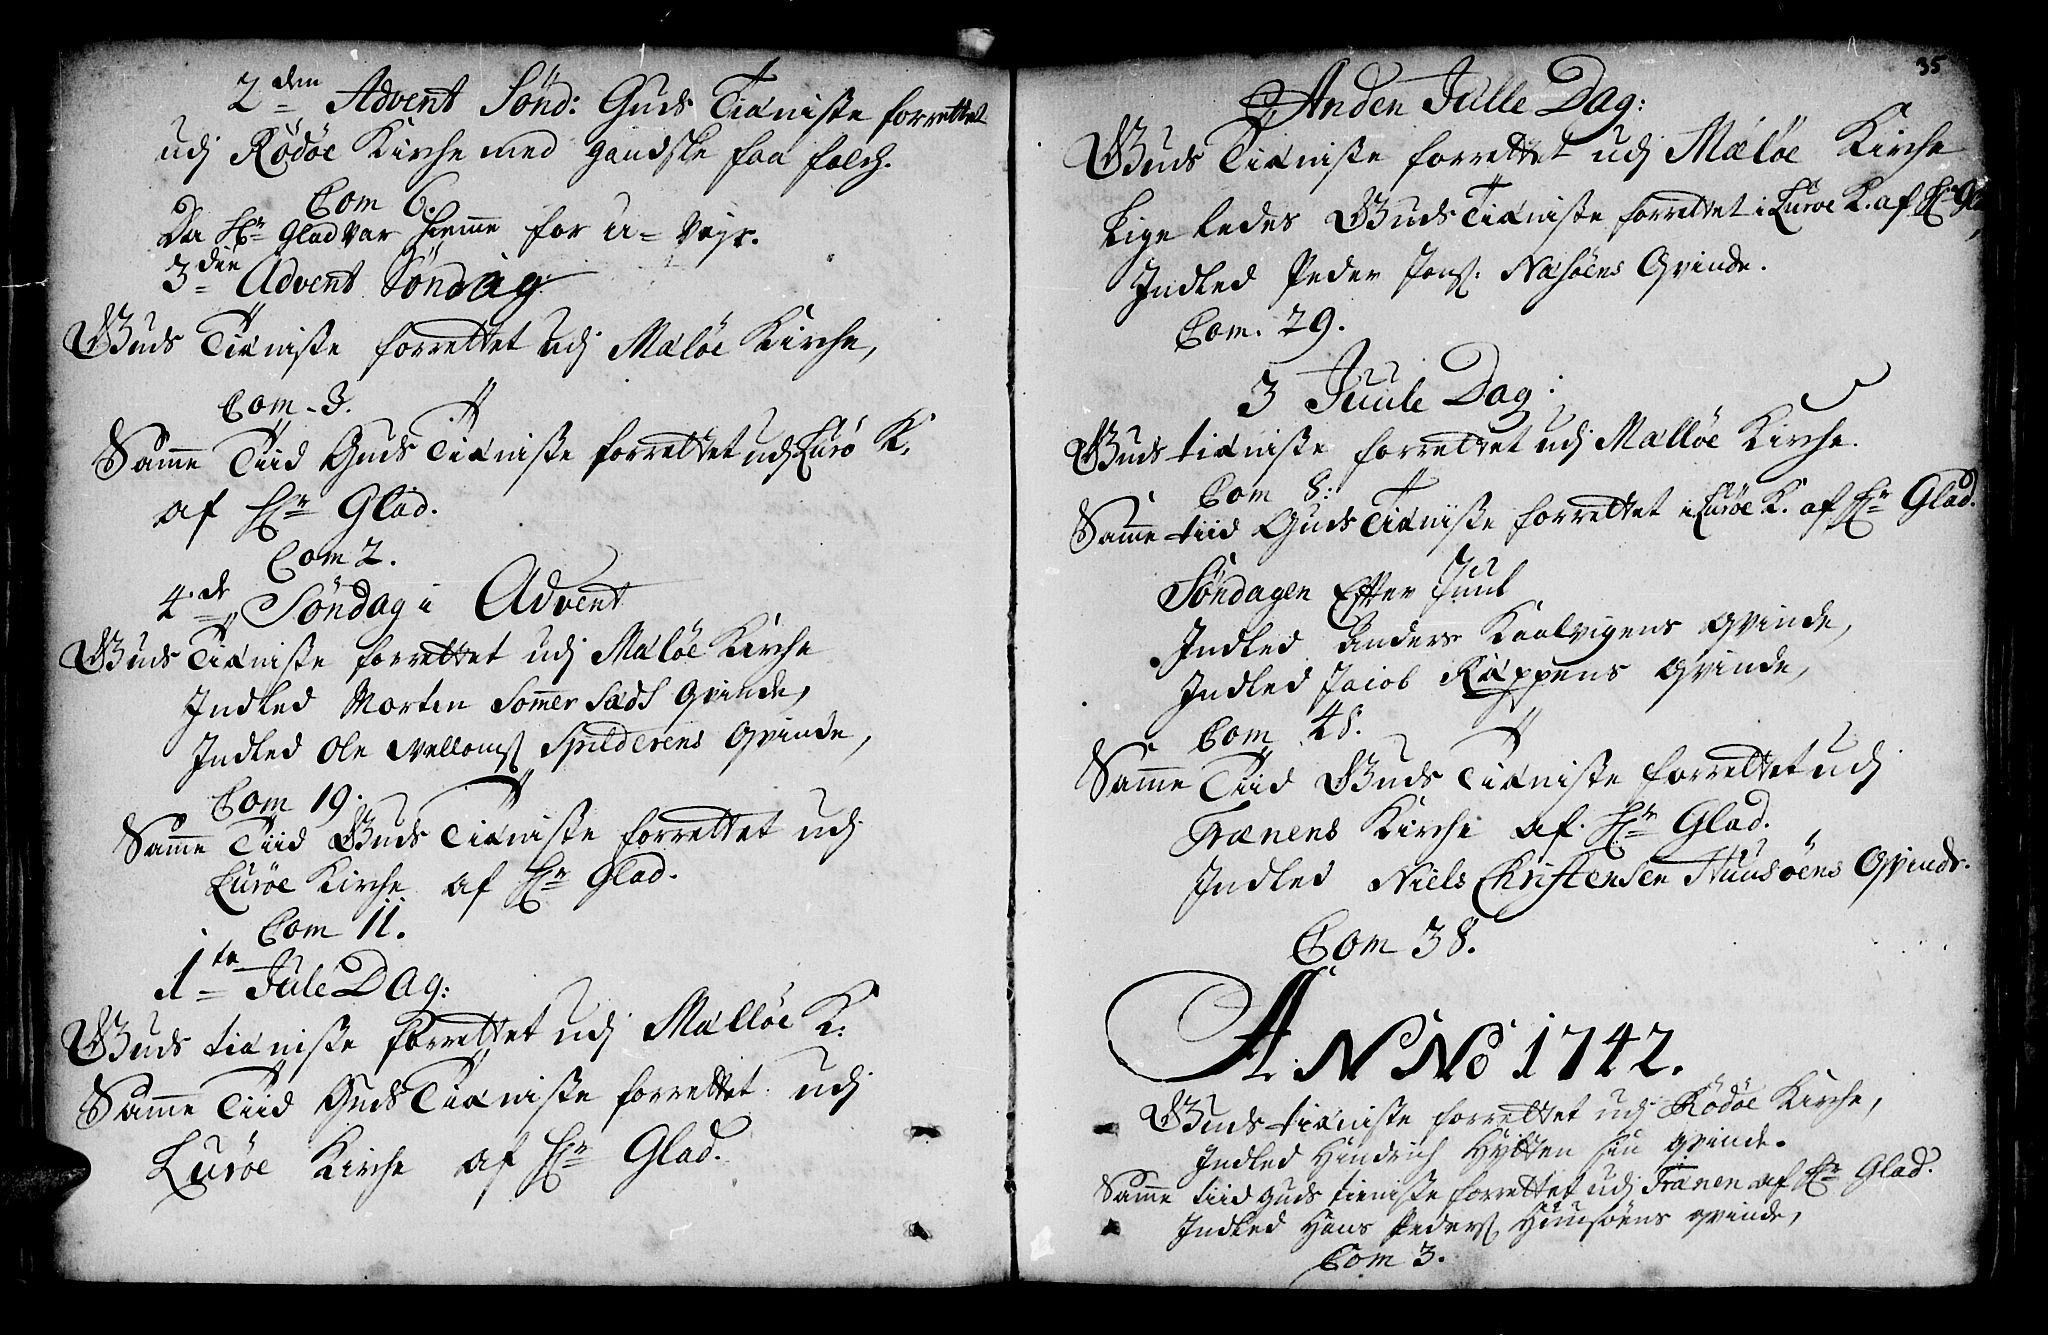 2den Advent Sönd: Guds Tiæniste forrettet
udj Rödöe Kirche med gandske faa folch.
Com 6.
Da Hr Glad var hiemme for u-Vejr.
3die Advent Söndag
Guds Tiæniste forrettet udj Mæløe Kirche,
Com. 3.
Samme Tiid Guds Tiæniste forrettet udj Lurö K.
af Hr Glad.
Com 2.
4de Söndag i Advent
Guds Tiæniste forrettet udj Mæløe Kirche
Indled Morten Sommer Sæds Qvinde,
Indled Ole Spilderens Qvinde,
Com 19.
Samme Tiid Guds Tiæniste forrettet udj
Luröe Kirche af Hr Glad.
Com 11.
1te Jule Dag:
Guds tiæniste forrettet udj Mælløe K.
Samme Tiid Guds Tiæniste forrettet udj
Luröe Kirche af Hr Glad.
35
Anden Julle Dag:
Guds Tiæniste forrettet udj Mæløe Kirche
Lige ledes Guds Tiæniste forrettet i Luröe K. af Hr
Indled Peder Jons. Næsöens Qvinde.
Com. 29.
3 Juule Dag:
Guds tiæniste forrettet udj Mælløe Kirche.
Com 8:
Samme tiid Guds Tiæniste forrettet i Luröe K. af Hr Glad.
Söndagen Efter Juul
Indled Anders Kaalvigens Qvinde,
Indled Jacob Ræppens Qvinde,
Com 48.
Samme Tiid Guds Tiæniste forrettet udj
Trænens Kirche af Hr Glad.
Indled Niels Christensen Huusöens Qvinde.
Com 38.
ANNO 1742.
Guds tiæniste forrettet udj Rödöe Kirche,
Indled Hindrich Hytten sin qvinde.
Samme tiid guds tieniste forrettet udj Trænen af Hr Glad.
Indled Hans Peders Huusöens qvinde,
Com 3.